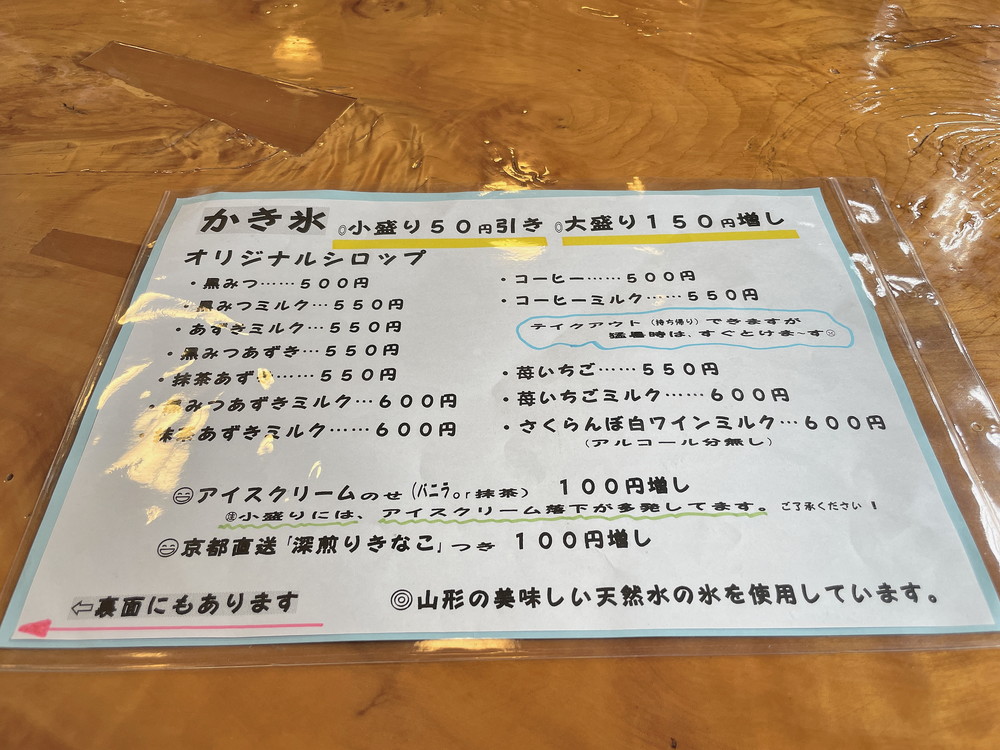 かき氷 ◎小盛り50円引き ◎大盛り150円増し
オリジナルシロップ
・黒みつ……500円
・黒みつミルク…550円
・あずきミルク…550円
・黒みつあずき…550円
・抹茶あず………550円
・黒みつあずきミルク…600円
・抹茶あずきミルク……600円
・コーヒー……500円
・コーヒーミルク…550円
テイクアウト(持ち帰り)できますが
猛暑時は、すぐとけま~す☹
・苺いちご……550円
・苺いちごミルク……600円
・さくらんぼ白ワインミルク…600円
(アルコール分無し)
😄アイスクリームのせ(バニラor抹茶) 100円増し
㊟小盛りには、アイスクリーム落下が多発してます。ご了承ください!
😄京都直送「深煎りきなこ」つき 100円増し
⇦裏面にもあります
◎山形の美味しい天然水の氷を使用しています。